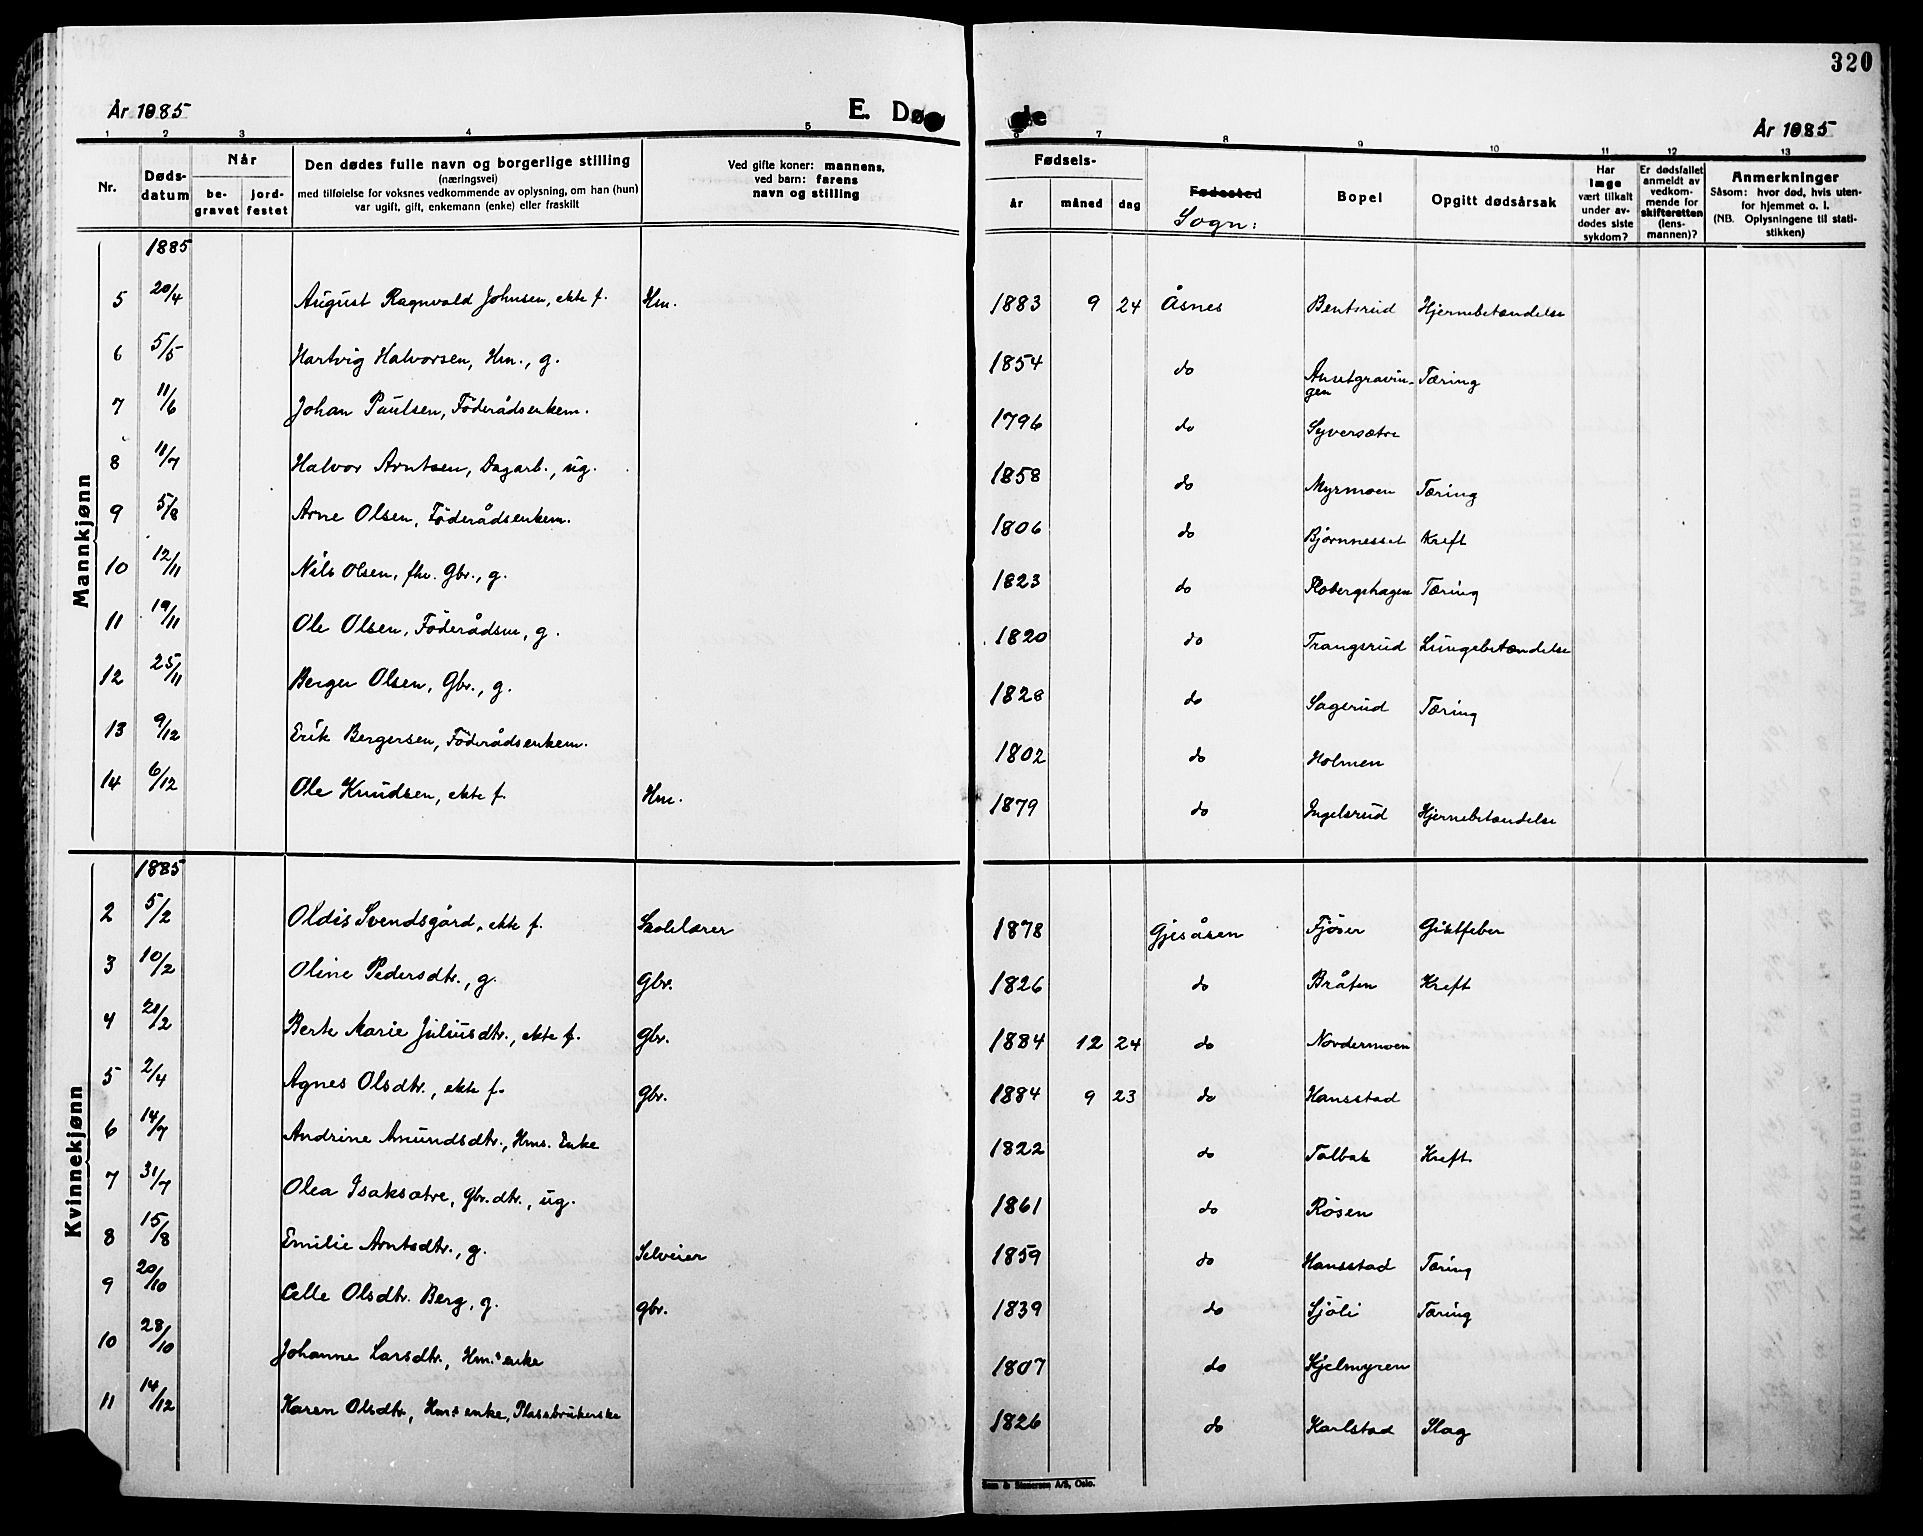 320
År 1885 E. Døde År 1885
1 2 3 4 5 6 7 8 9 10 11 12 13
Nr. Dødsdatum Når begravet jordfestet Den dødes fulle navn og borgerlige stilling (næringsvei) med tilføielse for voksnes vedkommende av oplysning, om han (hun) var ugift, gift, enkemann (enke) eller fraskilt Ved gifte koner: mannens, ved barn: farens navn og stilling Fødsels- år måned dag Fødested Sogn: Bopel Opgitt dødsårsak Har læge vært tilkalt under avdødes siste sykdom? Er dødsfallet anmeldt av vedkommende for skifteretten (lensmannen)? Anmerkninger Såsom: hvor død, hvis utenfor hjemmet o. l. (NB. Oplysningene til statistikken)
Mannkjønn
1885
5 20/4 August Ragnvald Johnsen, ekte f. Hm. 1883 9 24 Åsnes Bentsrud Hjernebetændelse
6 5/5 Hartvig Halvorsen, Hm., g. 1854 do Ansetgravingen Tæring
7 11/6 Johan Paulsen, Föderådsenkem. 1796 do Syversætre
8 11/7 Halvor Arntsen, Dagarb., ug. 1858 do Myrmoen Tæring
9 5/8 Arne Olsen, Föderådsenkem. 1806 do Bjørnnesset Kreft
10 12/11 Nils Olsen, fhv. Gbr., g. 1823 do Robergshagen Tæring
11 19/11 Ole Olsen, Föderådsm, g. 1820 do Trangsrud Lungebetændelse
12 25/11 Berger Olsen, Gbr., g. 1828 do Sagerud Tæring
13 9/12 Erik Bergersen, Föderådsenkem. 1802 do Holmen
14 6/12 Ole Knudsen, ekte f. Hm. 1879 do Ingelsrud Hjernebetændelse
Kvinnekjønn
1885
2 5/2 Oldis Svendsgård, ekte f. Skolelærer 1878 Gjesåsen Fjöser Giktfeber
3 10/2 Oline Pedersdtr., g. Gbr. 1826 do Bråten Kreft
4 28/2 Berte Marie Juliusdtr., ekte f. Gbr. 1884 12 24 do Nordermoen
5 2/4 Agnes Olsdtr., ekte f. Gbr. 1884 9 23 do Hansstad
6 14/7 Andrine Amundsdtr., Hms. Enke 1822 do Talbak Kreft
7 31/7 Olea Isaksætre, Gbr.dtr., ug. 1861 do Rösen
8 15/8 Emilie Arntsdtr., g. Selveier 1859 do Hansstad Tæring
9 20/10 Celle Olsdtr. Berg, g. Gbr. 1839 do Sjöli Tæring
10 28/10 Johanne Larsdtr., Hm.s enke 1807 do Kjelmyren
11 14/12 Karen Olsdtr, Hm.s enke, Plassbrukerske 1826 do Karlstad Slag
A/S, Oslo.